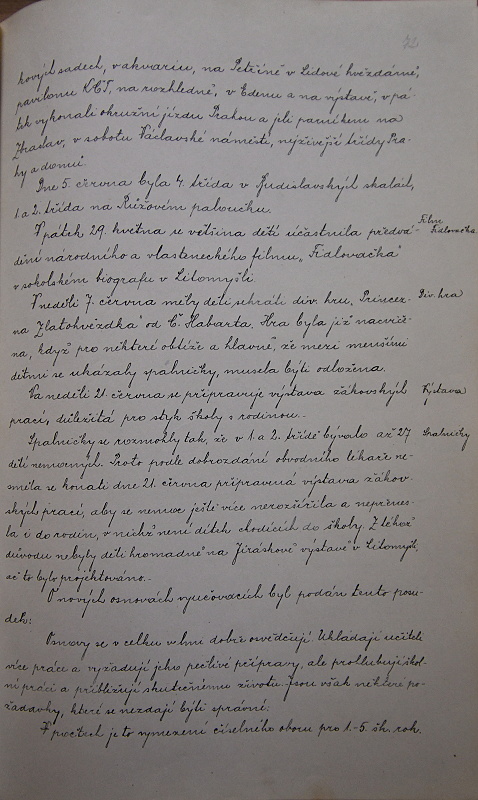 72
kových sadech, v akvariu, na Petříně v Lidové hvězdárně,
pavilonu KČT, na rozhledně, v Edenu a na výstavě, v pá-
tek vykonali okružní jízdu Prahou a jeli parníkem na
Zbraslav, v sobotu Václavské náměstí, nejživější třídy Pra-
hy a domů.
Dne 5. června byla 4. třída v Budislavských skalách,
1. a 2. třída na Růžovém paloučku.
V pátek 29. května se většina dětí účastnila předvá-
dění národního a vlasteneckého filmu „Fidlovačka"
v sokolském biografu v Litomyšli.
Filme
Fidlovačka
V neděli 7. června měly děti sehráti div. hru „Princez-
na Zlatohvězdka" od Č. Habarta. Hra byla již nacviče-
na, když pro některé obtíže a hlavně, že mezi menšími
dětmi se ukázaly spalničky, musela býti odložena.
Div. hra
Na neděli 21. června se připravuje výstava žákovských
prací, důležitá pro styk školy s rodinou.
Výstava
Spalničky se rozmohly tak, že v 1. a 2. třídě bývalo až 27
dětí nemocných. Proto podle dobrozdání obvodního lékaře ne-
směla se konati dne 21. června připravená výstava žákov-
ských prací, aby se nemoc ještě více nerozšířila a nepřenes-
la i do rodin, v nichž není dítek chodících do školy. Z téhož
důvodu nebyly děti hromadně na Jiráskově výstavě v Litomyšli,
ač to bylo projektováno.
Spalničky
O nových osnovách vyučovacích byl podán tento posu-
dek:
Osnovy se v celku velmi dobře osvědčují. Ukládají učiteli
více práce a vyžadují jeho pečlivé přípravy, ale prohlubují škol-
ní práci a přibližují skutečnému životu. Jsou však některé po-
žadavky, které se nezdají býti správné:
V počtech je to vymezení číselného oboru pro 1.-5. šk. rok.